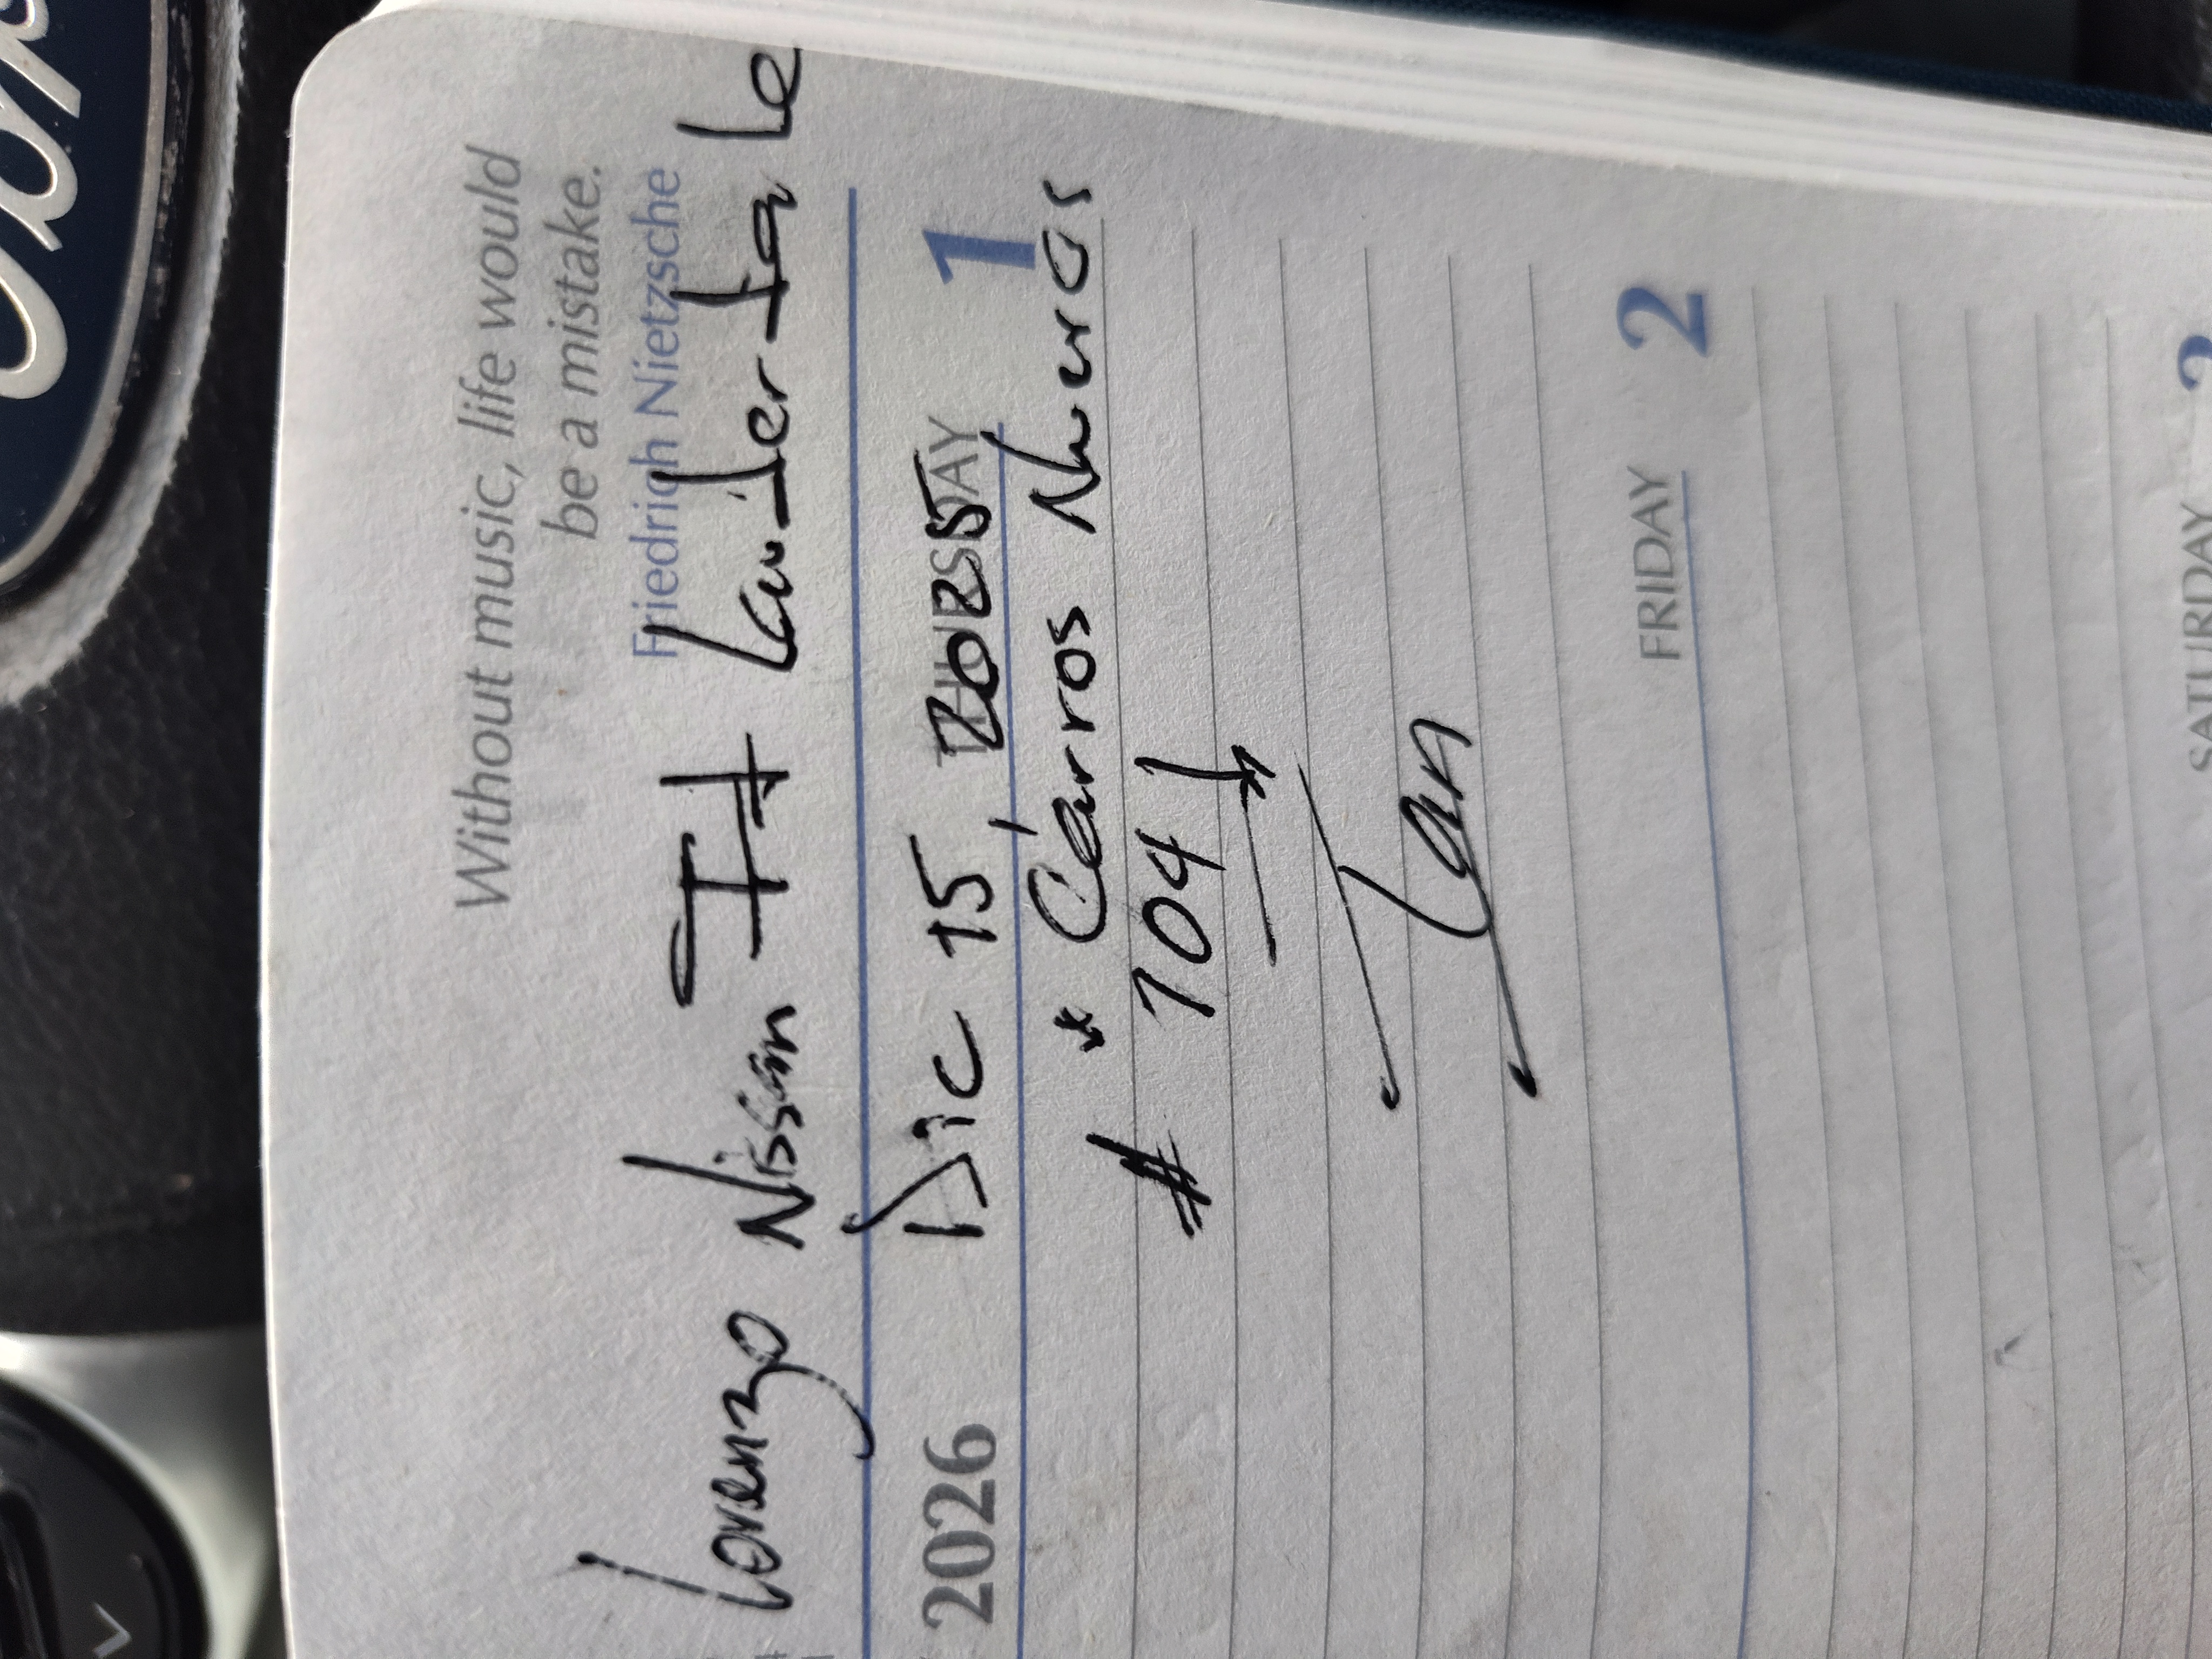 Without music, life would
be a mistake.
Friedrich Nietzsche
Lorenzo Nissan Ft Lauderdale
2026 THURSDAY 1
Dic 15, 2025
* Carros Nuevos
# 104
Tan
FRIDAY 2
SATURDAY 3